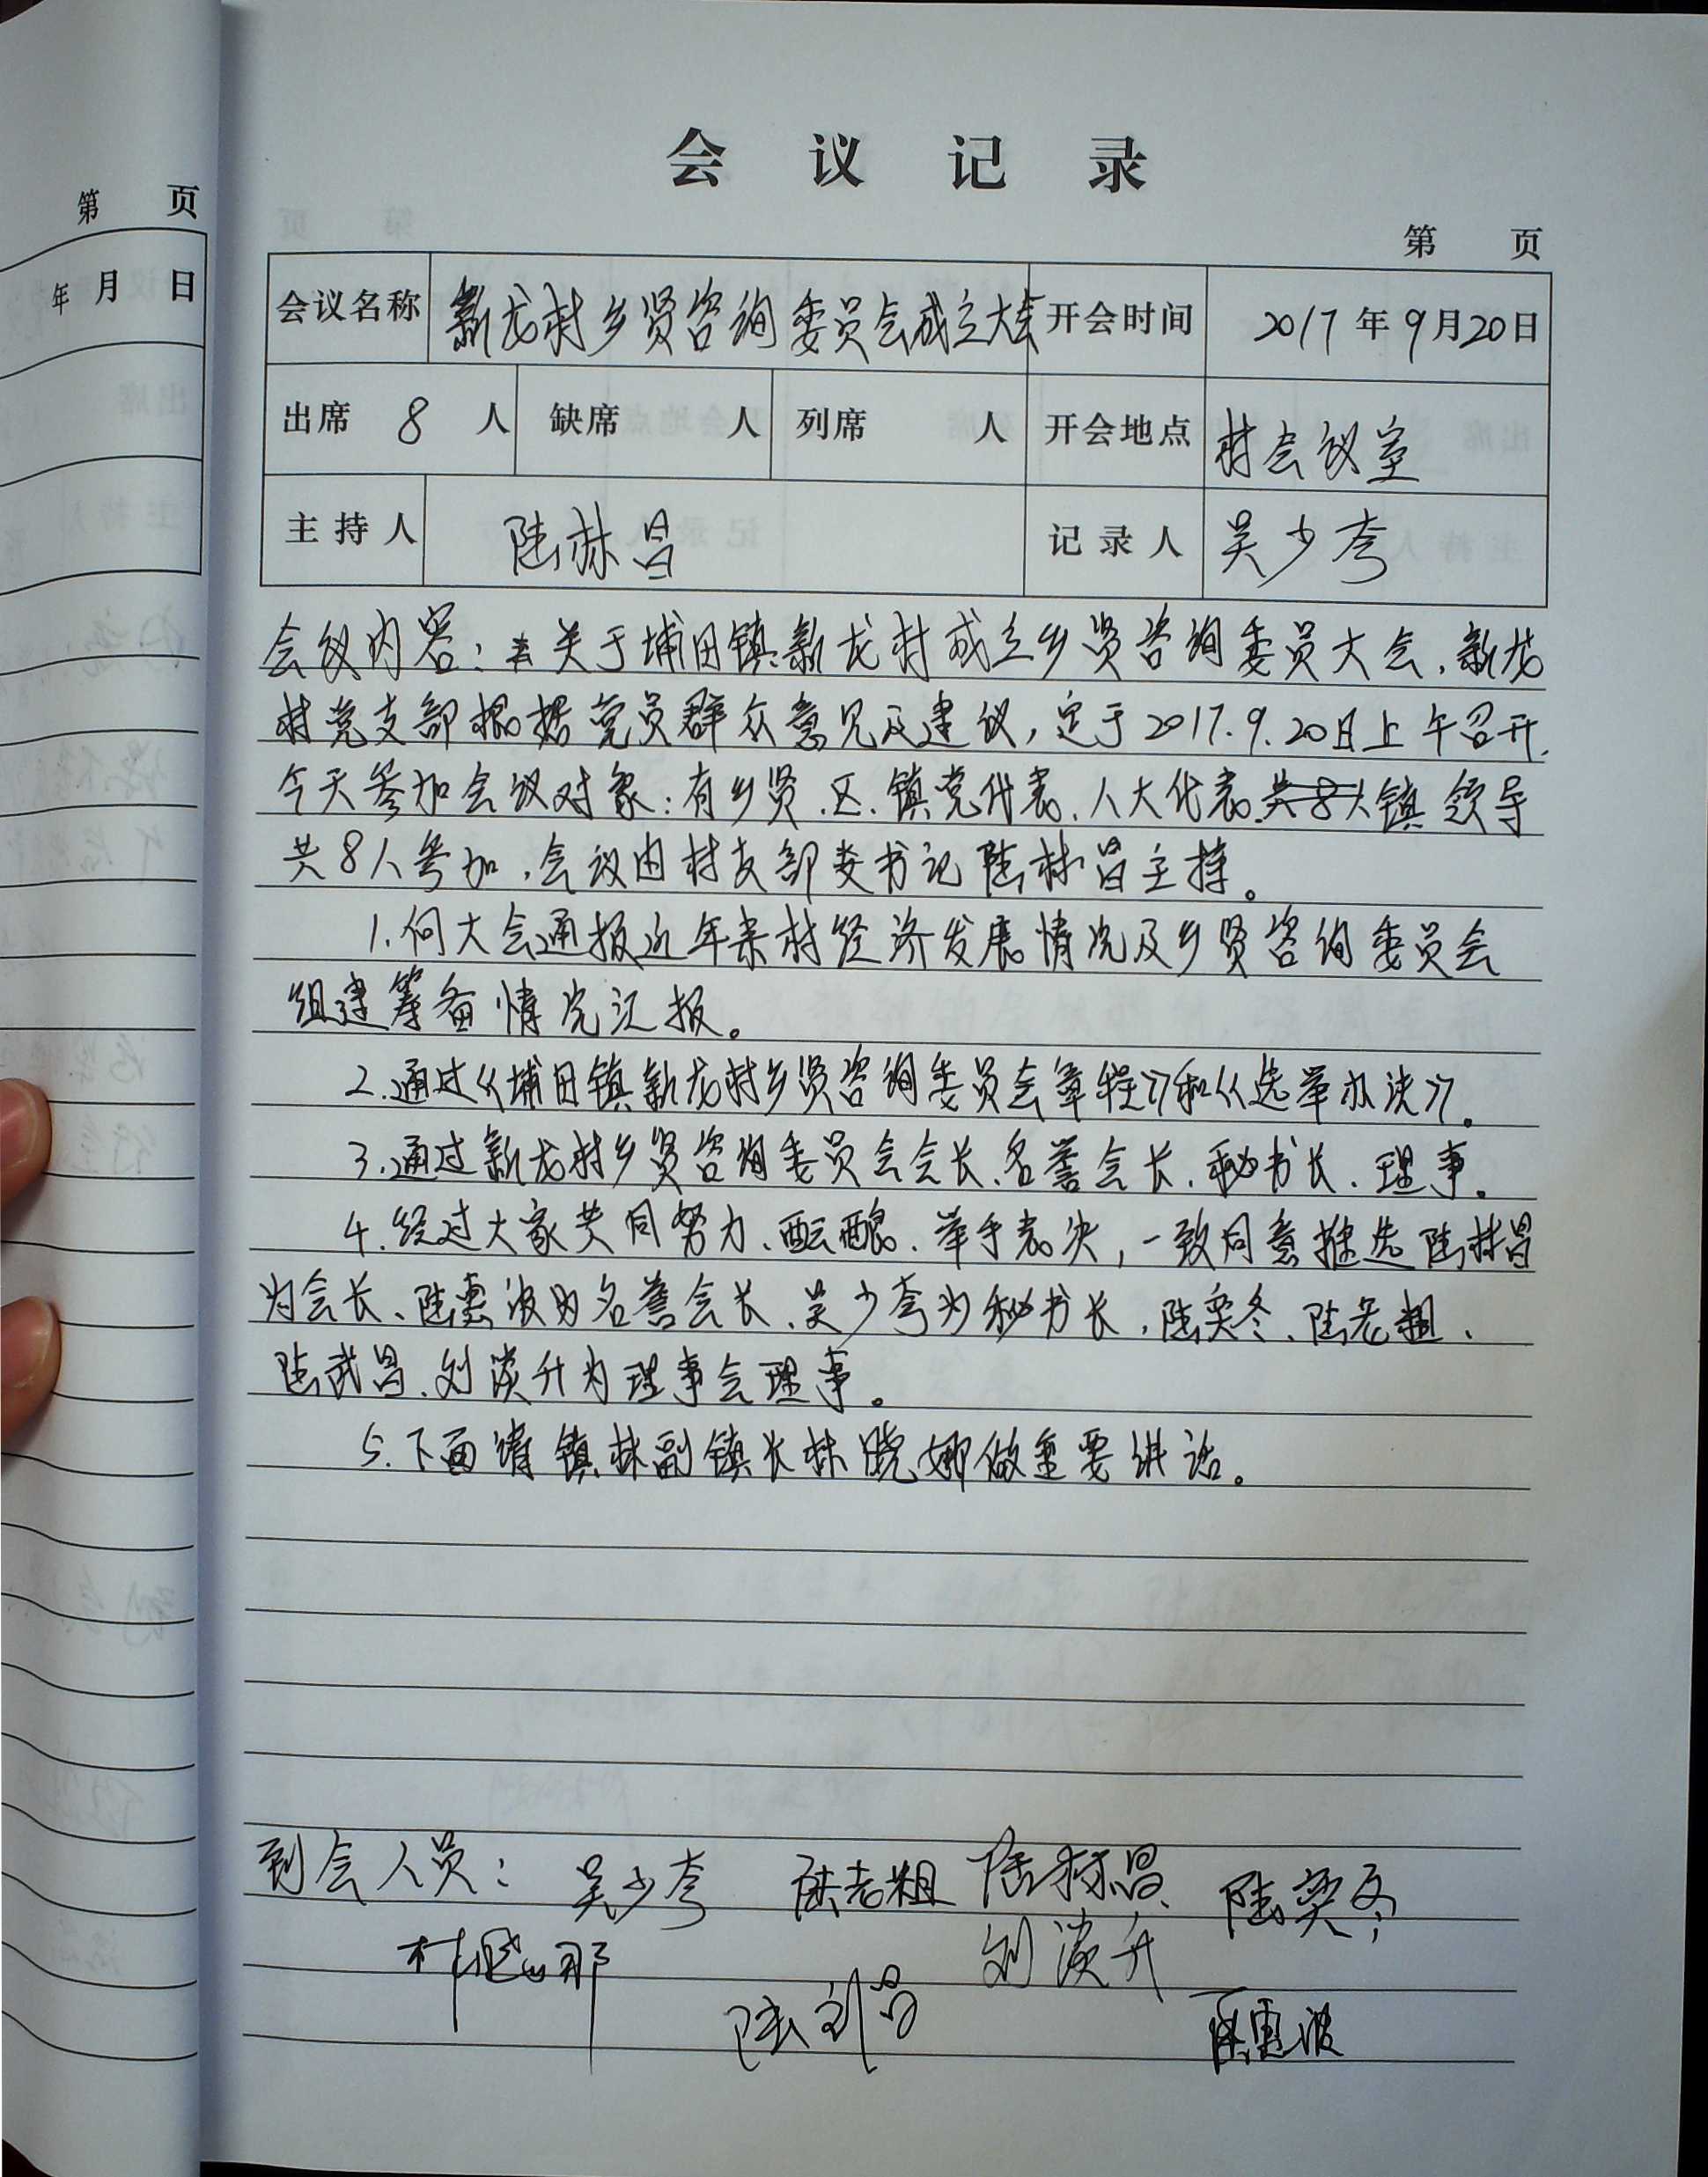 会议记录
第 页
第 页
年 月 日
会议名称 新龙村乡贤咨询委员会成立大会 开会时间 2017年9月20日
出席 8 人 缺席 人 列席 人 开会地点 村会议室
主持人 陆林昌 记录人 吴少夸
会议内容：关于埔田镇新龙村成立乡贤咨询委员大会、新龙
村党支部根据党员群众意见及建议，定于2017.9.20日上午召开、
今天参加会议对象：有乡贤、区、镇党代表、人大代表、共8人镇领导
共8人参加，会议由村支部委书记陆林昌主持。
1.向大会通报近年来村经济发展情况及乡贤咨询委员会
组建筹备情况汇报。
2.通过《埔田镇新龙村乡贤咨询委员会章程》和《选举办法》。
3.通过新龙村乡贤咨询委员会会长、名誉会长、秘书长、理事。
4.经过大家共同努力、酝酿、举手表决，一致同意推选陆林昌
为会长、陆惠波为名誉会长、吴少夸为秘书长，陆奕冬、陆老粗、
陆武昌、刘汉升为理事会理事。
5.下面请镇林副镇长林晓娜做重要讲话。
到会人员：吴少夸 陆老粗 陆林昌 陆奕冬
刘汉升
陆惠波